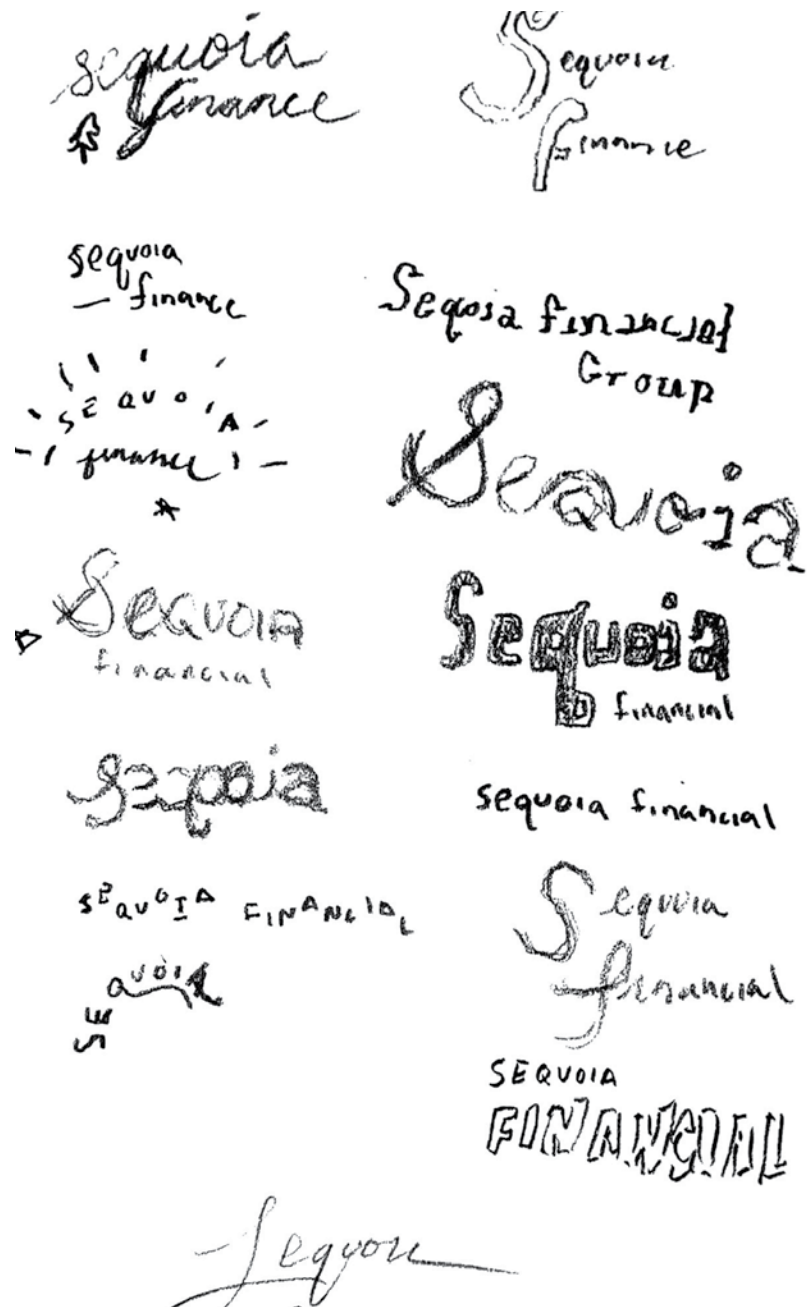 sequoia
finance
Sequoia
Finance
sequoia
— finance
SEQUOIA
finance
Sequoia financial
Group
Sequoia
SEQUOIA
financial
Sequoia
financial
Sequoia
sequoia financial
SEQUOIA FINANCIAL
SEQUOIA
Sequoia
financial
SEQUOIA
FINANCIAL
Sequoia